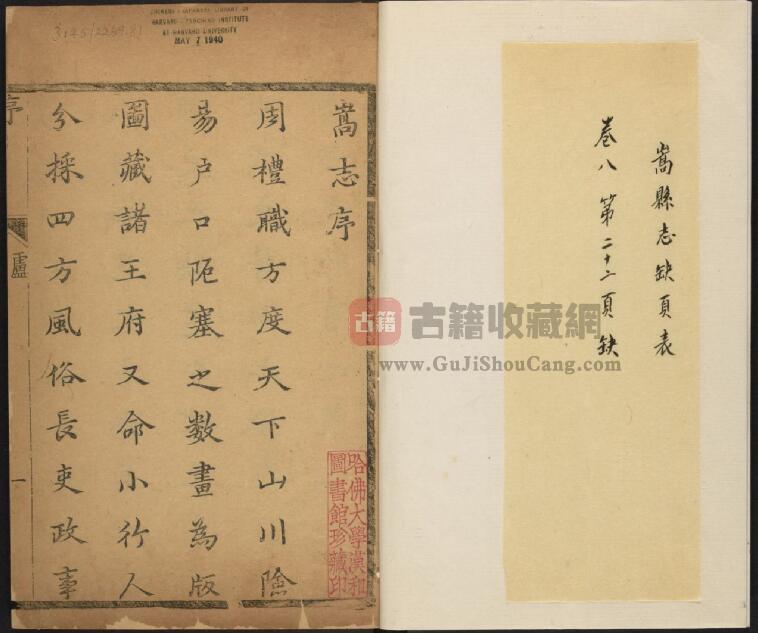 嵩縣志缺頁表
卷八 第二十二頁缺
嵩志序
周禮職方度天下山川險
易户口阨塞之數畫為版
圖藏諸王府又命小行人
分採四方風俗長吏政事
序
盧
一
哈佛大學漢和
圖書館珍藏印
CHINESE-JAPANESE LIBRARY OF
HARVARD-YENCHING INSTITUTE
AT HARVARD UNIVERSITY
MAY 7 1940
古籍
古籍收藏網
www.GuJiShouCang.com